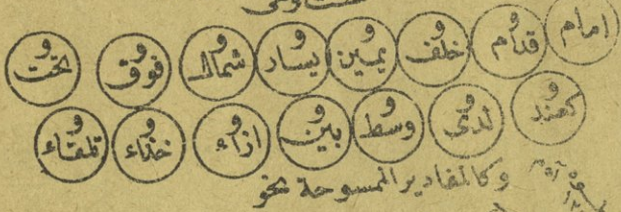 امام و قدام و خلف و يمين و يسار و شمال و فوق و تحت
و كعند و لدى و وسط و بين و ازاء و حذاء و تلقاء
وكالمقادير الممسوحة نحو